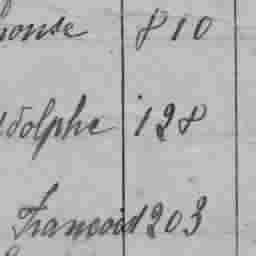 810
dolphe 128
François 203